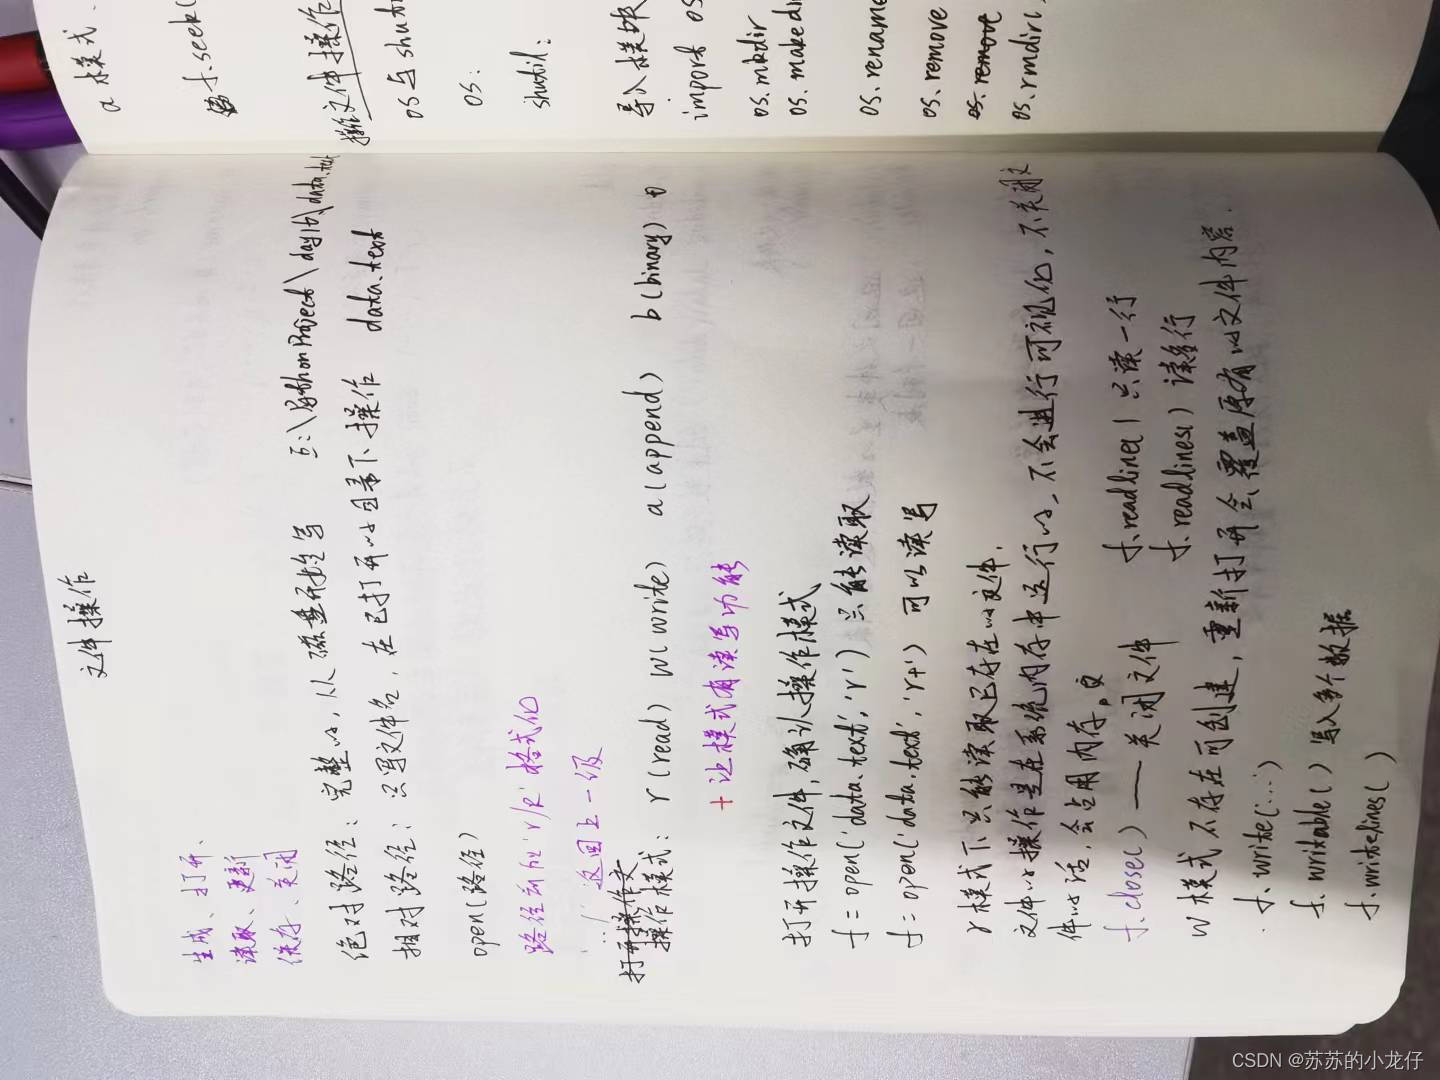 文件操作
生成、打开、
读取、更新
保存、关闭
绝对路径：完整的，从磁盘开始写 E:\PythonProject\day16\data.text
相对路径：只写文件名，在已打开的目录下操作 data.text
open(路径)
路径前加'r/R'格式化
'../' 返回上一级
打开操作文
操作模式：r(read) w(write) a(append) b(binary)
+ 让模式有读写功能
打开操作文件，确认操作模式
f=open('data.text','r')只能读取
f=open('data.text','r+')可以读写
r模式下只能读取已存在的文件.
文件的操作是在系统内存中运行的，不会进行可视化，不关闭文
件的话，会占用内存。
f.close() —— 关闭文件
f.readline() 只读一行
f.readlines() 读多行
w模式不存在可创建，重新打开会覆盖原有的文件内容.
f.write(...)
f.writable() 写入多个数据
f.writelines()
a模式.
f.seek(
操文件操作
os与shut
os:
shutil:
导入模块
import os
os.mkdir
os.makedi
os.rename
os.remove
os.remove
os.rmdir(
CSDN @苏苏的小龙仔